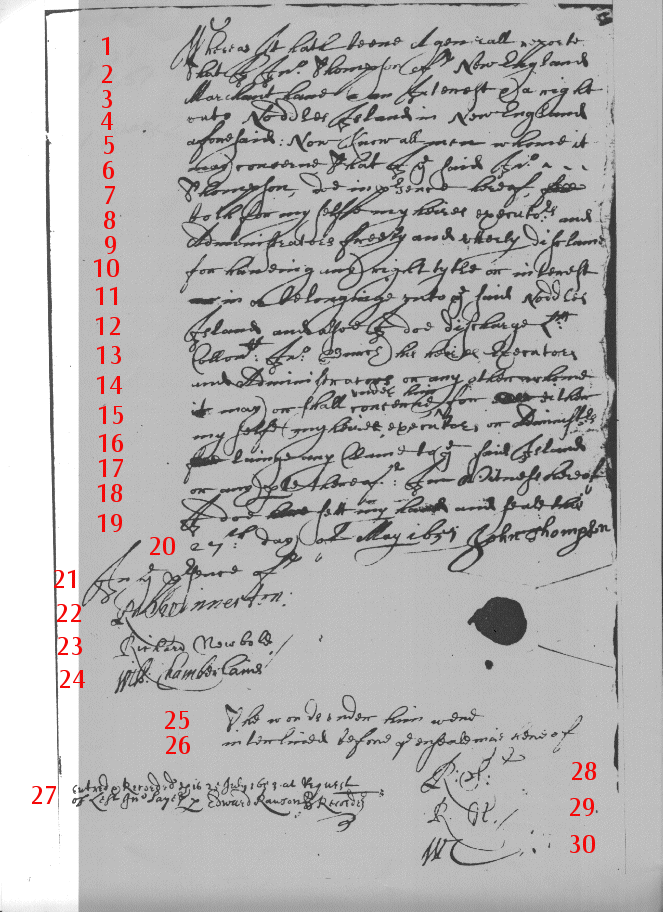 1 Whereas It hath beene A generall reporte
2 that I Jno. Thompson of New England
3 Marchant have an Interest & a right
4 unto Noddles Island in New England
5 aforesaid: Now Know all men whome it
6 may concerne that I ye said Jno.
7 Thompson, doe in presence hereof,
8 both for my selfe my heires executors and
9 Administrators freely and utterly disclame
10 for haveing any right tytle or interest
11 in or belonginge unto ye said Noddles
12 Island and alsoe I doe discharge
13 Collon: his heires Executors
14 and Administrators or any other whome
under him
15 it may or shall concerne for either
16 my selfe my heires executors or Administrs
17 any Clame to ye said Island
18 or any pte thereof: In Witness hereof
19 I doe sett my hand and seale this
20 27th day of May 1657 John Thompson
21 In ye psence of
22
23 Richard Newbold
24 Wm. Chamberlaine
25 The words under him were
26 interlined before ye ensealeinge hereof
27 entred & Recorded July at Request
of Left Jno Sayer p Edward Rawson Recorder
28 R:
29 R.
30 W